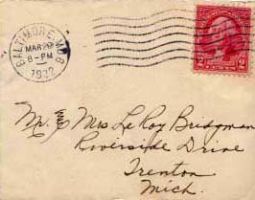 BALTIMORE, MD. 8
MAR 29
8-PM
1932
2 2
Mr. & Mrs LeRoy Bridgman
Riverside Drive
Trenton
Mich.